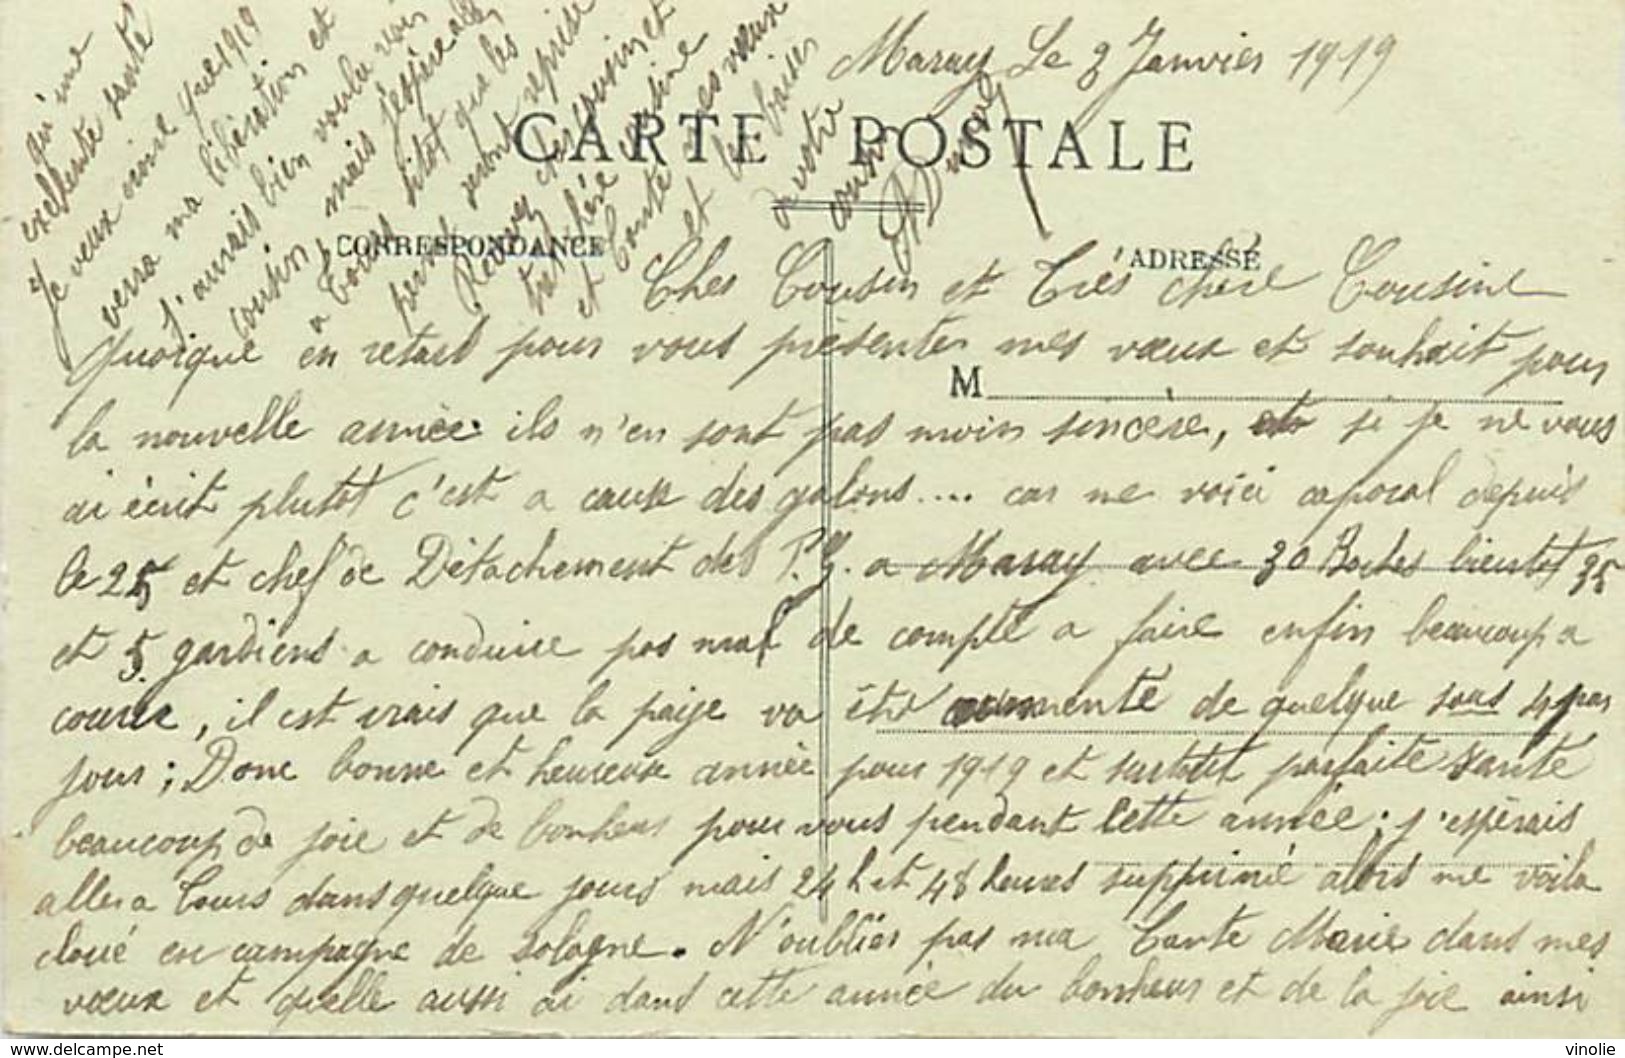 Maray Le 2 Janvier 1919
CARTE POSTALE
CORRESPONDANCE
ADRESSE
M
Cher Cousin et Très chère Cousine
Quoique en retard pour vous présenter mes vœux et souhait pour
la nouvelle année ils n'en sont pas moin sincère, si je ne vous
ai écrit plutot c'est a cause des galons.... car me voici caporal depuis
le 25 et chef de Détachement des P.G. a Maray avec 30 Boches bientot 35
et 5 gardiens a conduire pas mal de compte a faire enfin beaucoup a
courir, il est vrais que la paije va être aumenté de quelque sous 4 par
jour ; Donc bonne et heureuse année pour 1919 et surtout parfaite santé
beaucoup de joie et de bonheur pour vous pendant cette année ; j'espérais
aller a Tours dans quelque jours mais 24 h et 48 heures supprimé alors me voila
cloué en campagne de Sologne. N'oublier pas ma Tante Marie dans mes
vœux et quelle aussi ai dans cette année du bonheur et de la joie ainsi
qu'une
excellente santé
Je veux croire que 1919
verra ma libération et
j'aurais bien voulu voir
cousin mais j'espère aller
a Tours sitot que les
perm seront reprise
Recevez cher cousin et
très chère cousine
et Tante mes vœux
et les baiser
a votre
cousin